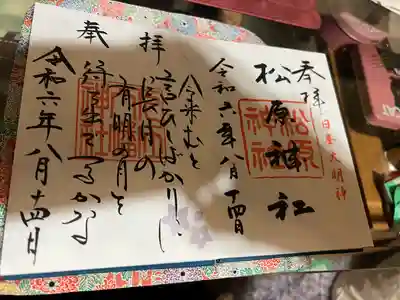 奉拝
日峯大明神
松原神社
松原神社
令和六年八月十四日
今来むと
言ひしばかりに
長月の
有明の月を
待ち出でつるかな
奉拝
令和六年八月十四日